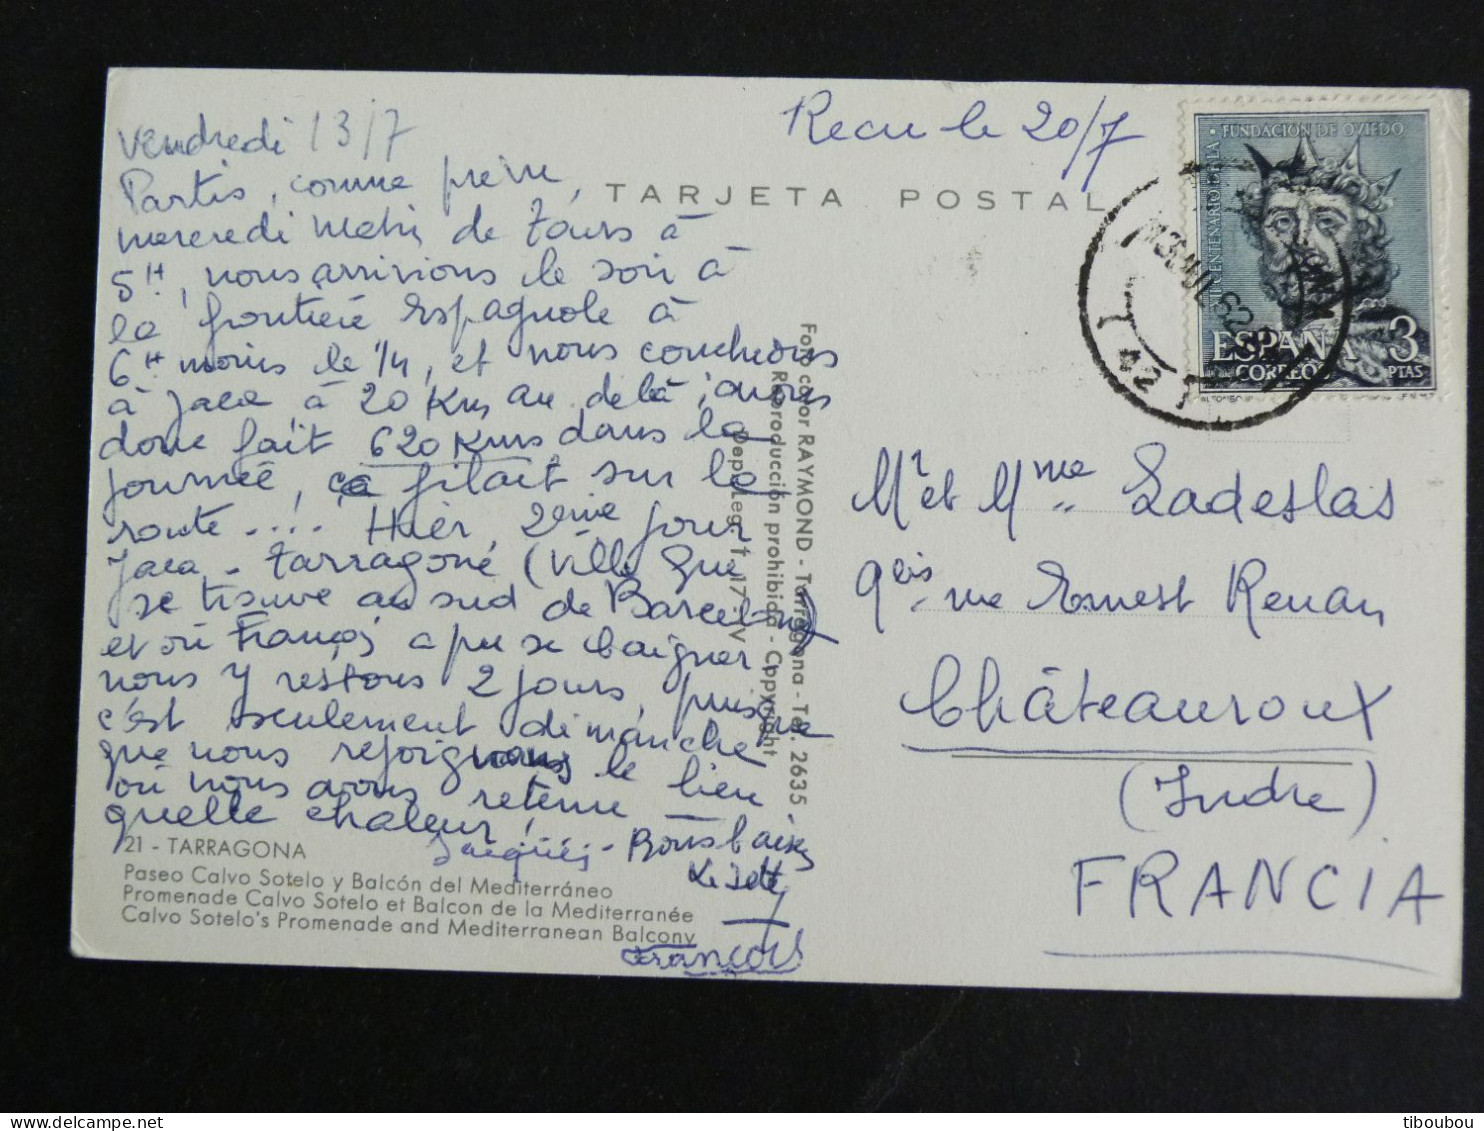 Vendredi 13/7
Partis, comme prévu,
mercredi matin de Tours à
5H, nous arrivions le soir à
la frontière Espagnole à
6H moins le 1/4, et nous couchions
à Jaca à 20 Kms au delà, avons
donc fait 620 Kms dans la
journée, ça filait sur la
route...!. Hier, 2ème jour
Jaca - Tarragone (Ville que
se trouve au sud de Barcelone
et où François a pu se baigner,
nous y restons 2 jours, puisque
c'est seulement dimanche
que nous rejoignons le lieu
où nous avons retenu -
quelle chaleur!
Jacques - Bons baisers
Lisette
François
21 - TARRAGONA
Paseo Calvo Sotelo y Balcón del Mediterráneo
Promenade Calvo Sotelo et Balcon de la Mediterranée
Calvo Sotelo's Promenade and Mediterranean Balcony
TARJETA POSTAL
Foto color RAYMOND - Tarragona - Tel. 2635
Reproducción prohibida - Copyright
Dep. Leg. T. 17 - V
Recu le 20/7
XII CENTENARIO DE LA
FUNDACION DE OVIEDO
ESPAÑA 3
CORREOS PTAS
13 JUL 62
Mr et Mme Ladeslas
9bis rue Ernest Renan
Châteauroux
(Indre)
FRANCIA
tiboubou